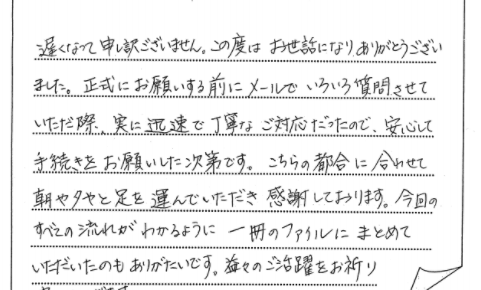 遅くなって申し訳ございません。この度は お世話になり、ありがとうござい
ました。正式にお願いする前にメールで いろいろ質問させて
いただ際、実に迅速で丁寧なご対応だったので、安心して
手続きをお願いした次第です。こちらの都合に合わせて
朝や夕やと足を運んでいただき 感謝しております。今回の
すべての流れがわかるように 一冊のファイルに まとめて
いただいたのもありがたいです。益々のご活躍をお祈り